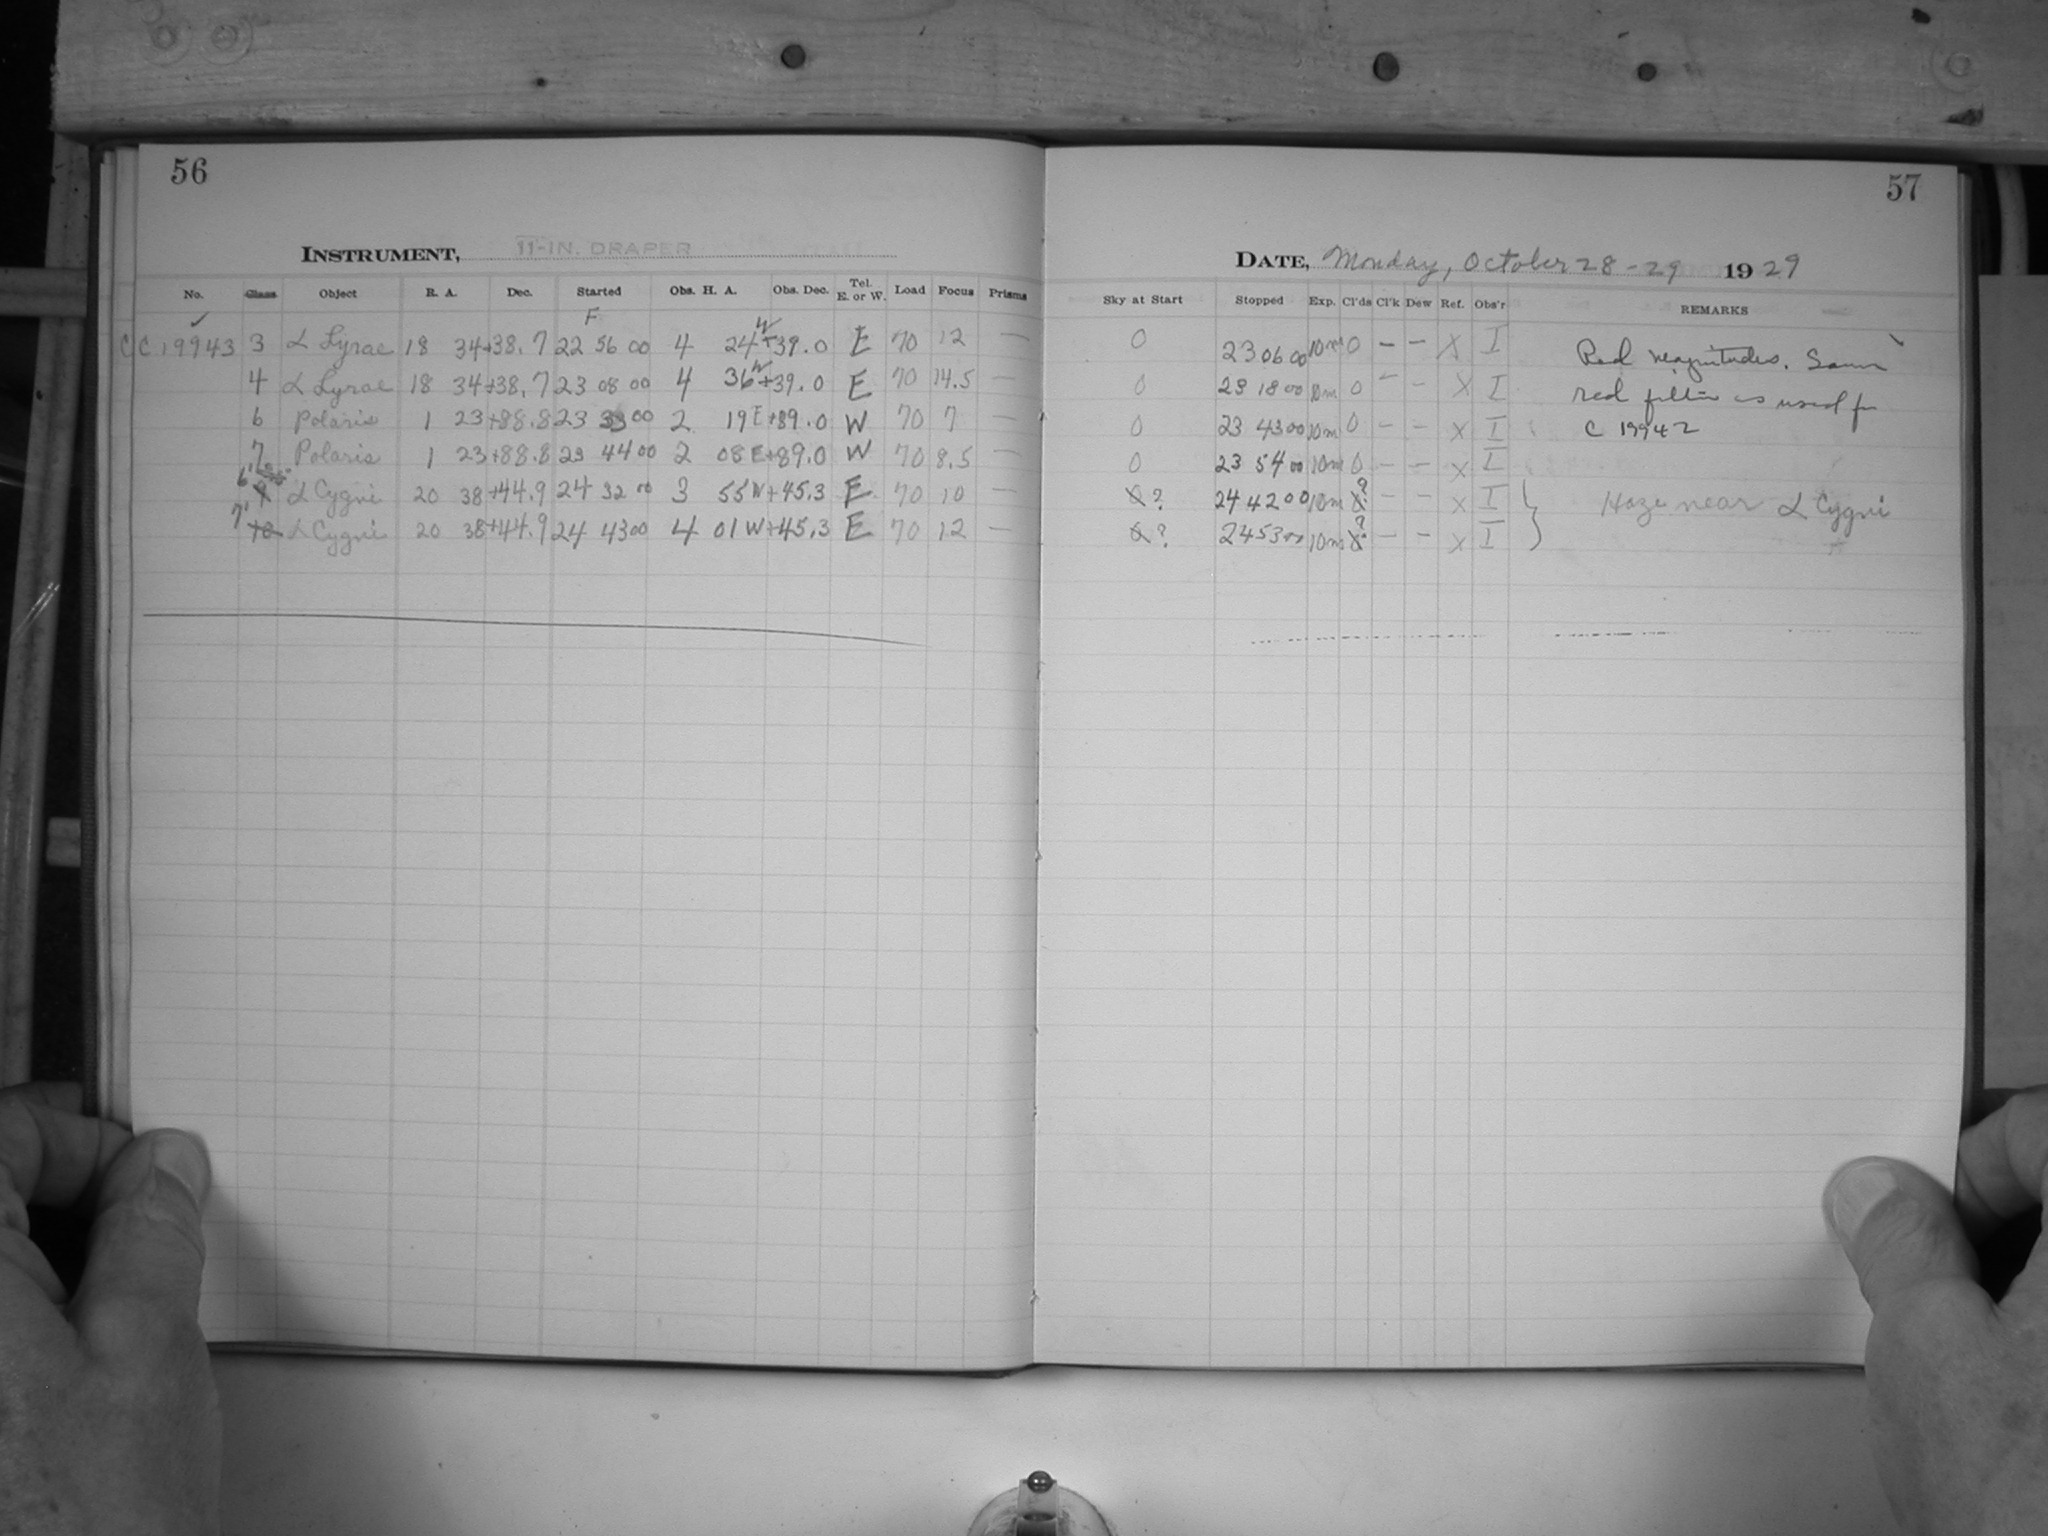 56
INSTRUMENT, 11-IN. DRAPER
No. Class Object R. A. Dec. Started Obs. H. A. Obs. Dec. Tel. E. or W. Load Focus Prisms
F
C C 19943 3 α Lyrae 18 34 +38.7 22 56 00 4 24 W +39.0 E 70 12 —
4 α Lyrae 18 34 +38.7 23 08 00 4 36 W +39.0 E 70 14.5 —
6 Polaris 1 23 +88.8 23 33 00 2 19 E +89.0 W 70 7 —
7 Polaris 1 23 +88.8 23 44 00 2 08 E +89.0 W 70 8.5 —
6' α Cygni 20 38 +44.9 24 32 00 3 55 W +45.3 E 70 10 —
7' 10 α Cygni 20 38 +44.9 24 43 00 4 01 W +45.3 E 70 12 —
57
DATE, Monday, October 28-29 1929
Sky at Start Stopped Exp. Cl'ds Cl'k Dew Ref. Obs'r REMARKS
0 23 06 00 10m 0 — — X I Red magnitudes. Same
0 23 18 00 10m 0 — — X I red filter as used for
0 23 43 00 10m 0 — — X I C 19942
0 23 54 00 10m 0 — — X I
? 24 42 00 10m ? — — X I } Haze near α Cygni
? 24 53 00 10m ? — — X I "